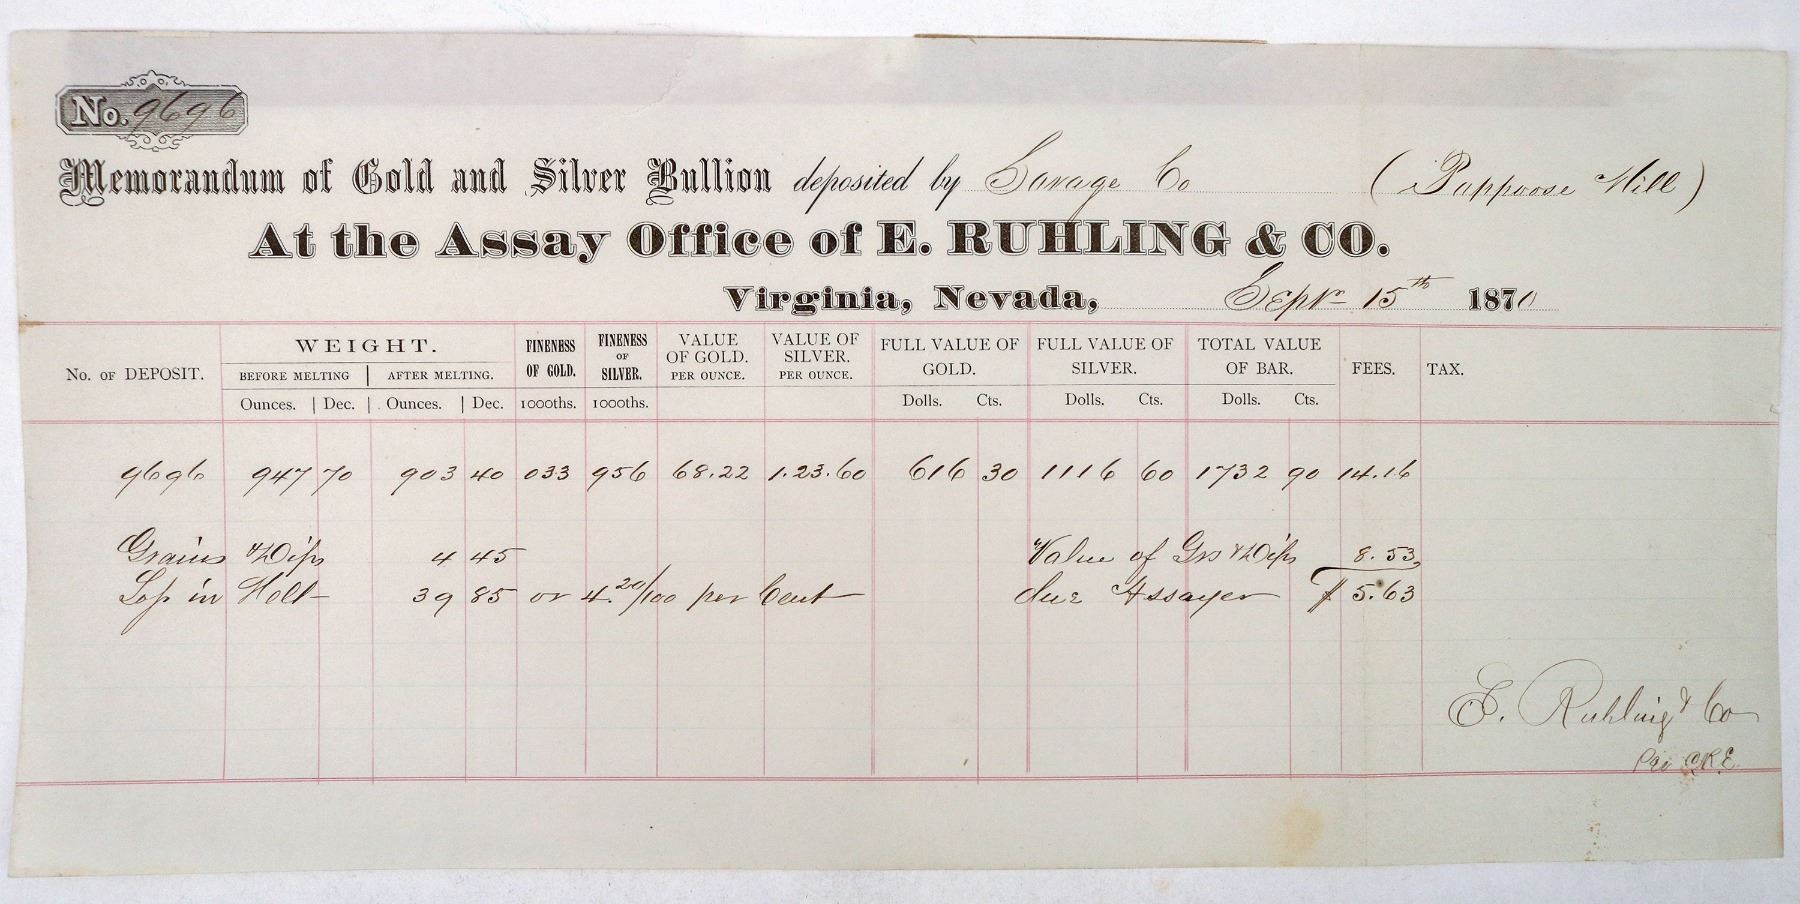 No. 9696
Memorandum of Gold and Silver Bullion deposited by Savage Co (Pappoose Mill)
At the Assay Office of E. RUHLING & CO.
Virginia, Nevada, Septr 15th 1870
No. OF DEPOSIT. WEIGHT. FINENESS OF GOLD. FINENESS OF SILVER. VALUE OF GOLD. PER OUNCE. VALUE OF SILVER. PER OUNCE. FULL VALUE OF GOLD. FULL VALUE OF SILVER. TOTAL VALUE OF BAR. FEES. TAX.
BEFORE MELTING AFTER MELTING.
Ounces. Dec. Ounces. Dec. 1000ths. 1000ths. Dolls. Cts. Dolls. Cts. Dolls. Cts.
9696 947 70 903 40 033 956 68.22 1.23.60 616 30 1116 60 1732 90 14.16
Grains & Dips 4 45 Value of Grs & Dips 8.53
Loss in Melt 39 85 or 4.20/100 per Cent due Assayer $ 5.63
E. Ruhling & Co